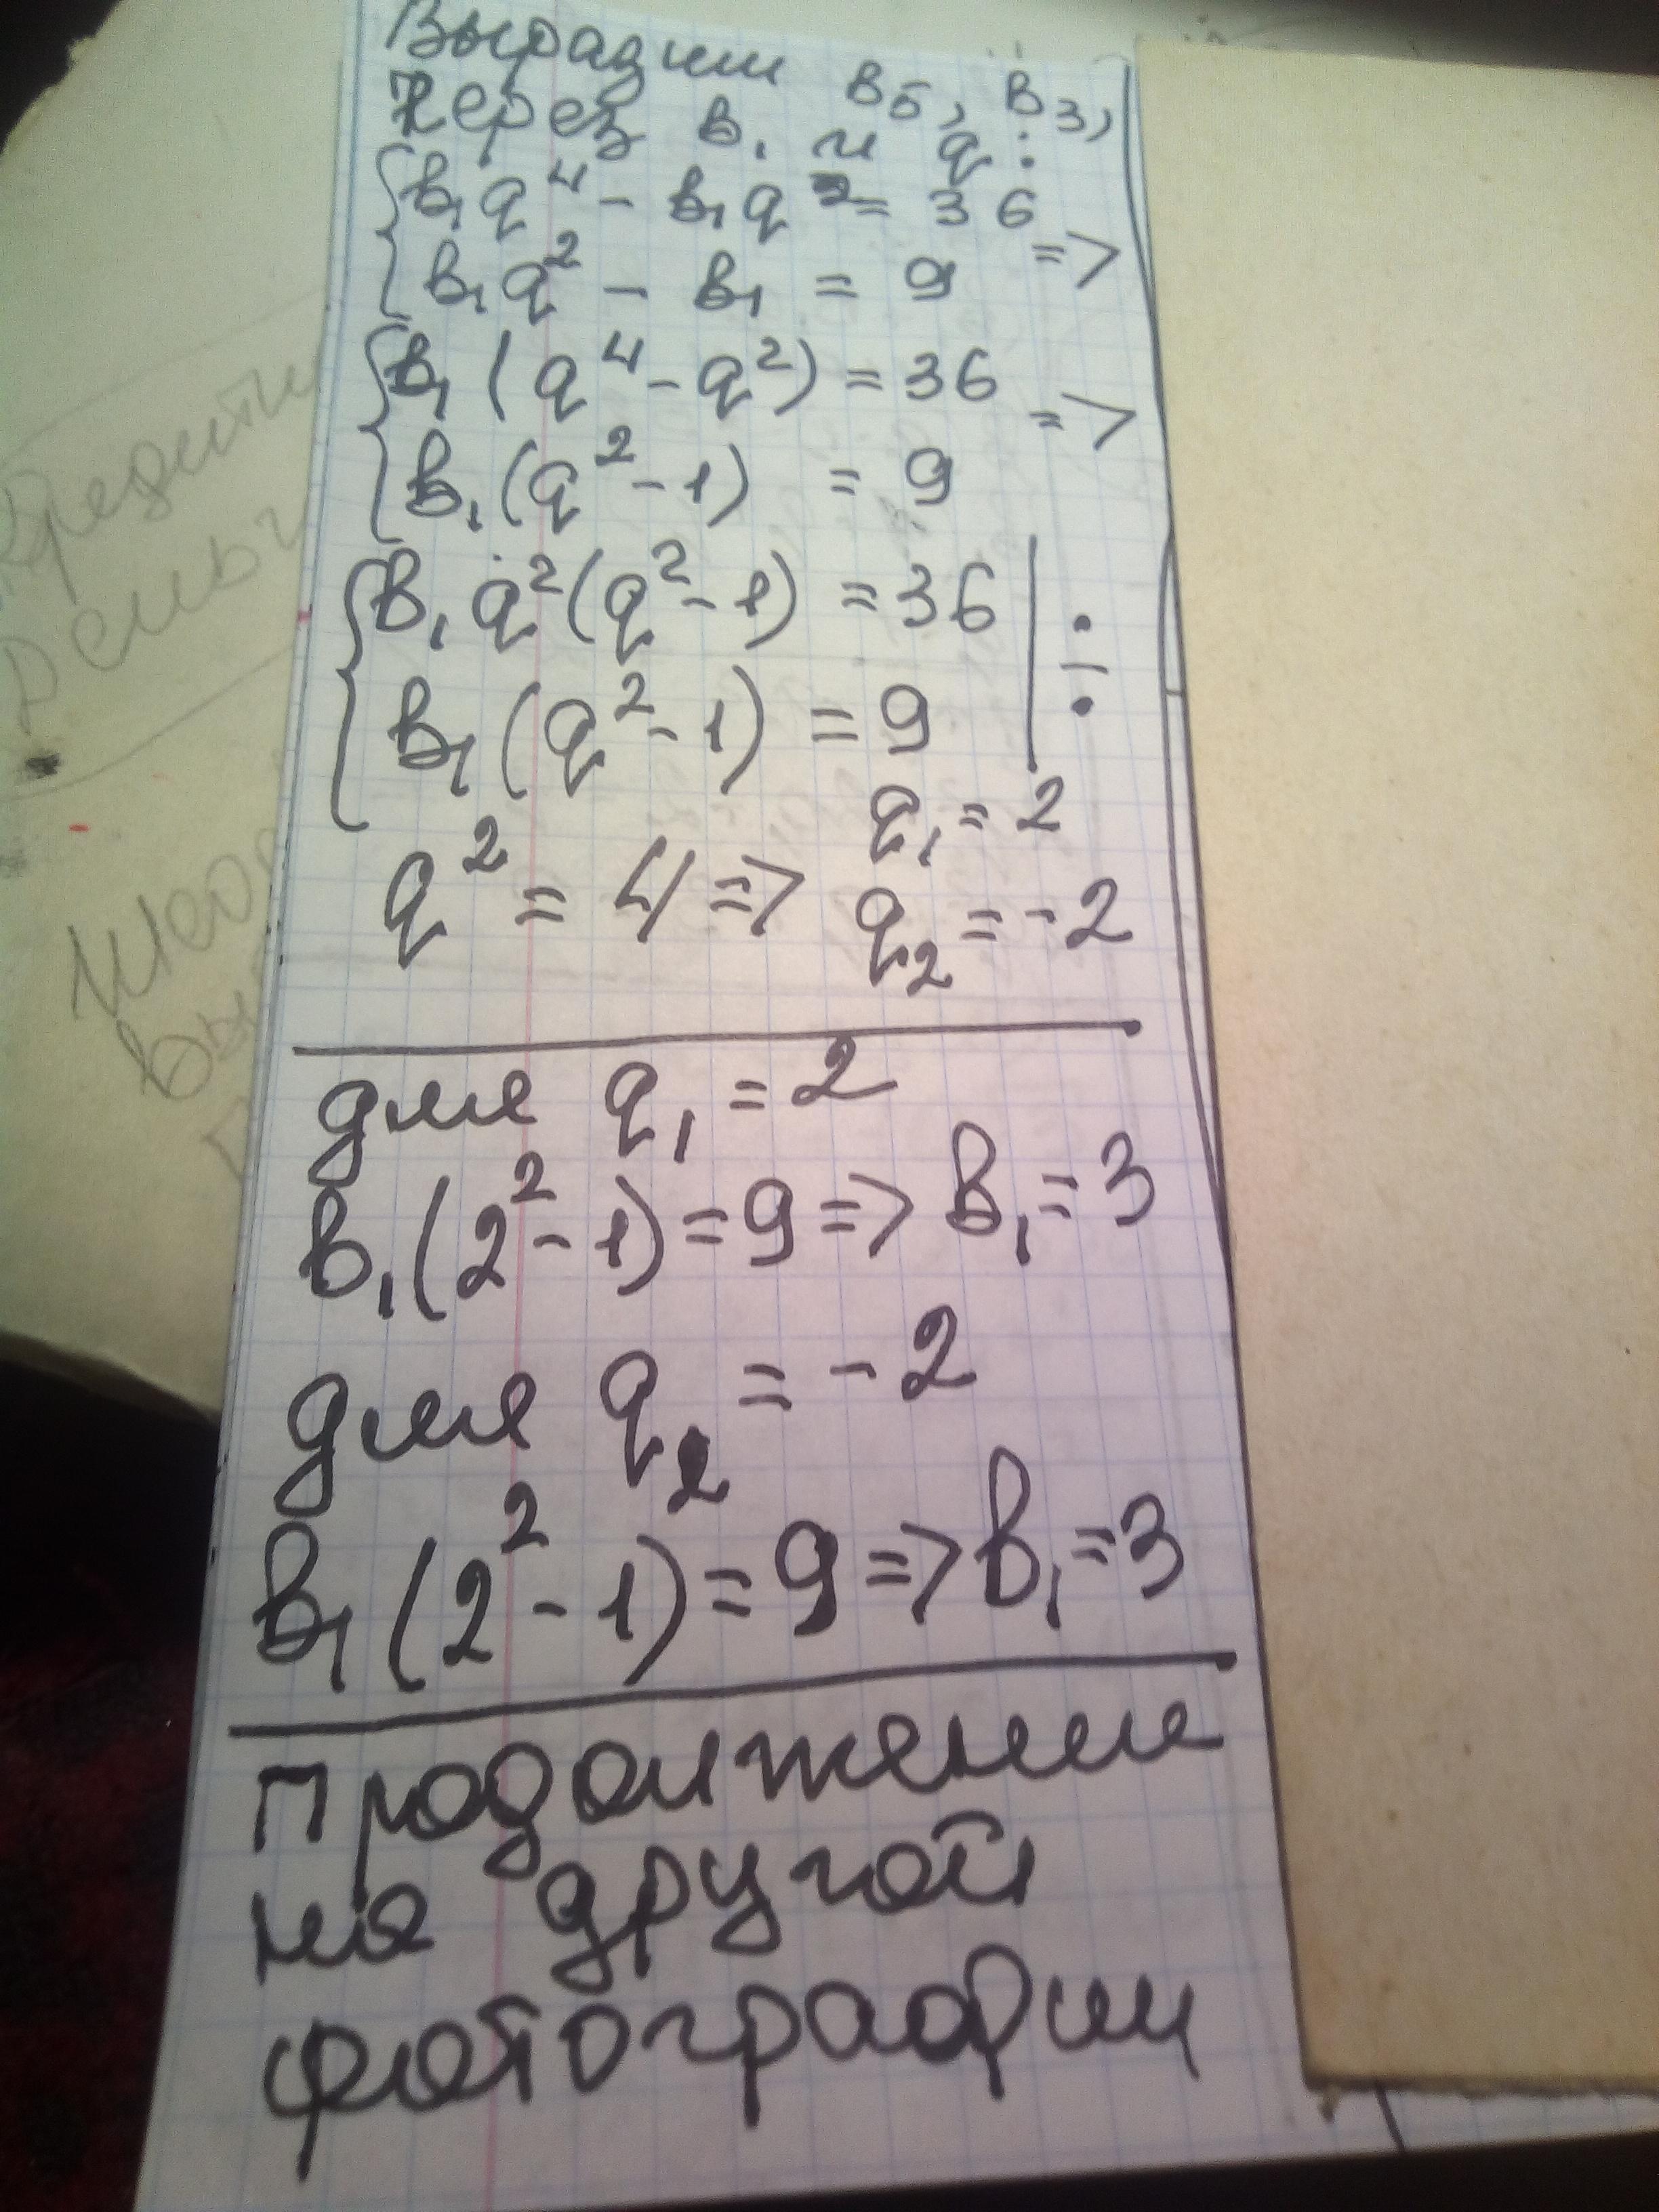 Выразим в₅, в₃,
через в₁ и q:
в₁q⁴ - в₁q² = 36
в₁q² - в₁ = 9 =>
в₁(q⁴ - q²) = 36
в₁(q² - 1) = 9 =>
в₁q²(q² - 1) = 36
в₁(q² - 1) = 9 | ÷
q² = 4 => q₁ = 2
q₂ = -2
для q₁ = 2
в₁(2² - 1) = 9 => в₁ = 3
для q₂ = -2
в₁(2² - 1) = 9 => в₁ = 3
Продолжение
на другой
фотографии